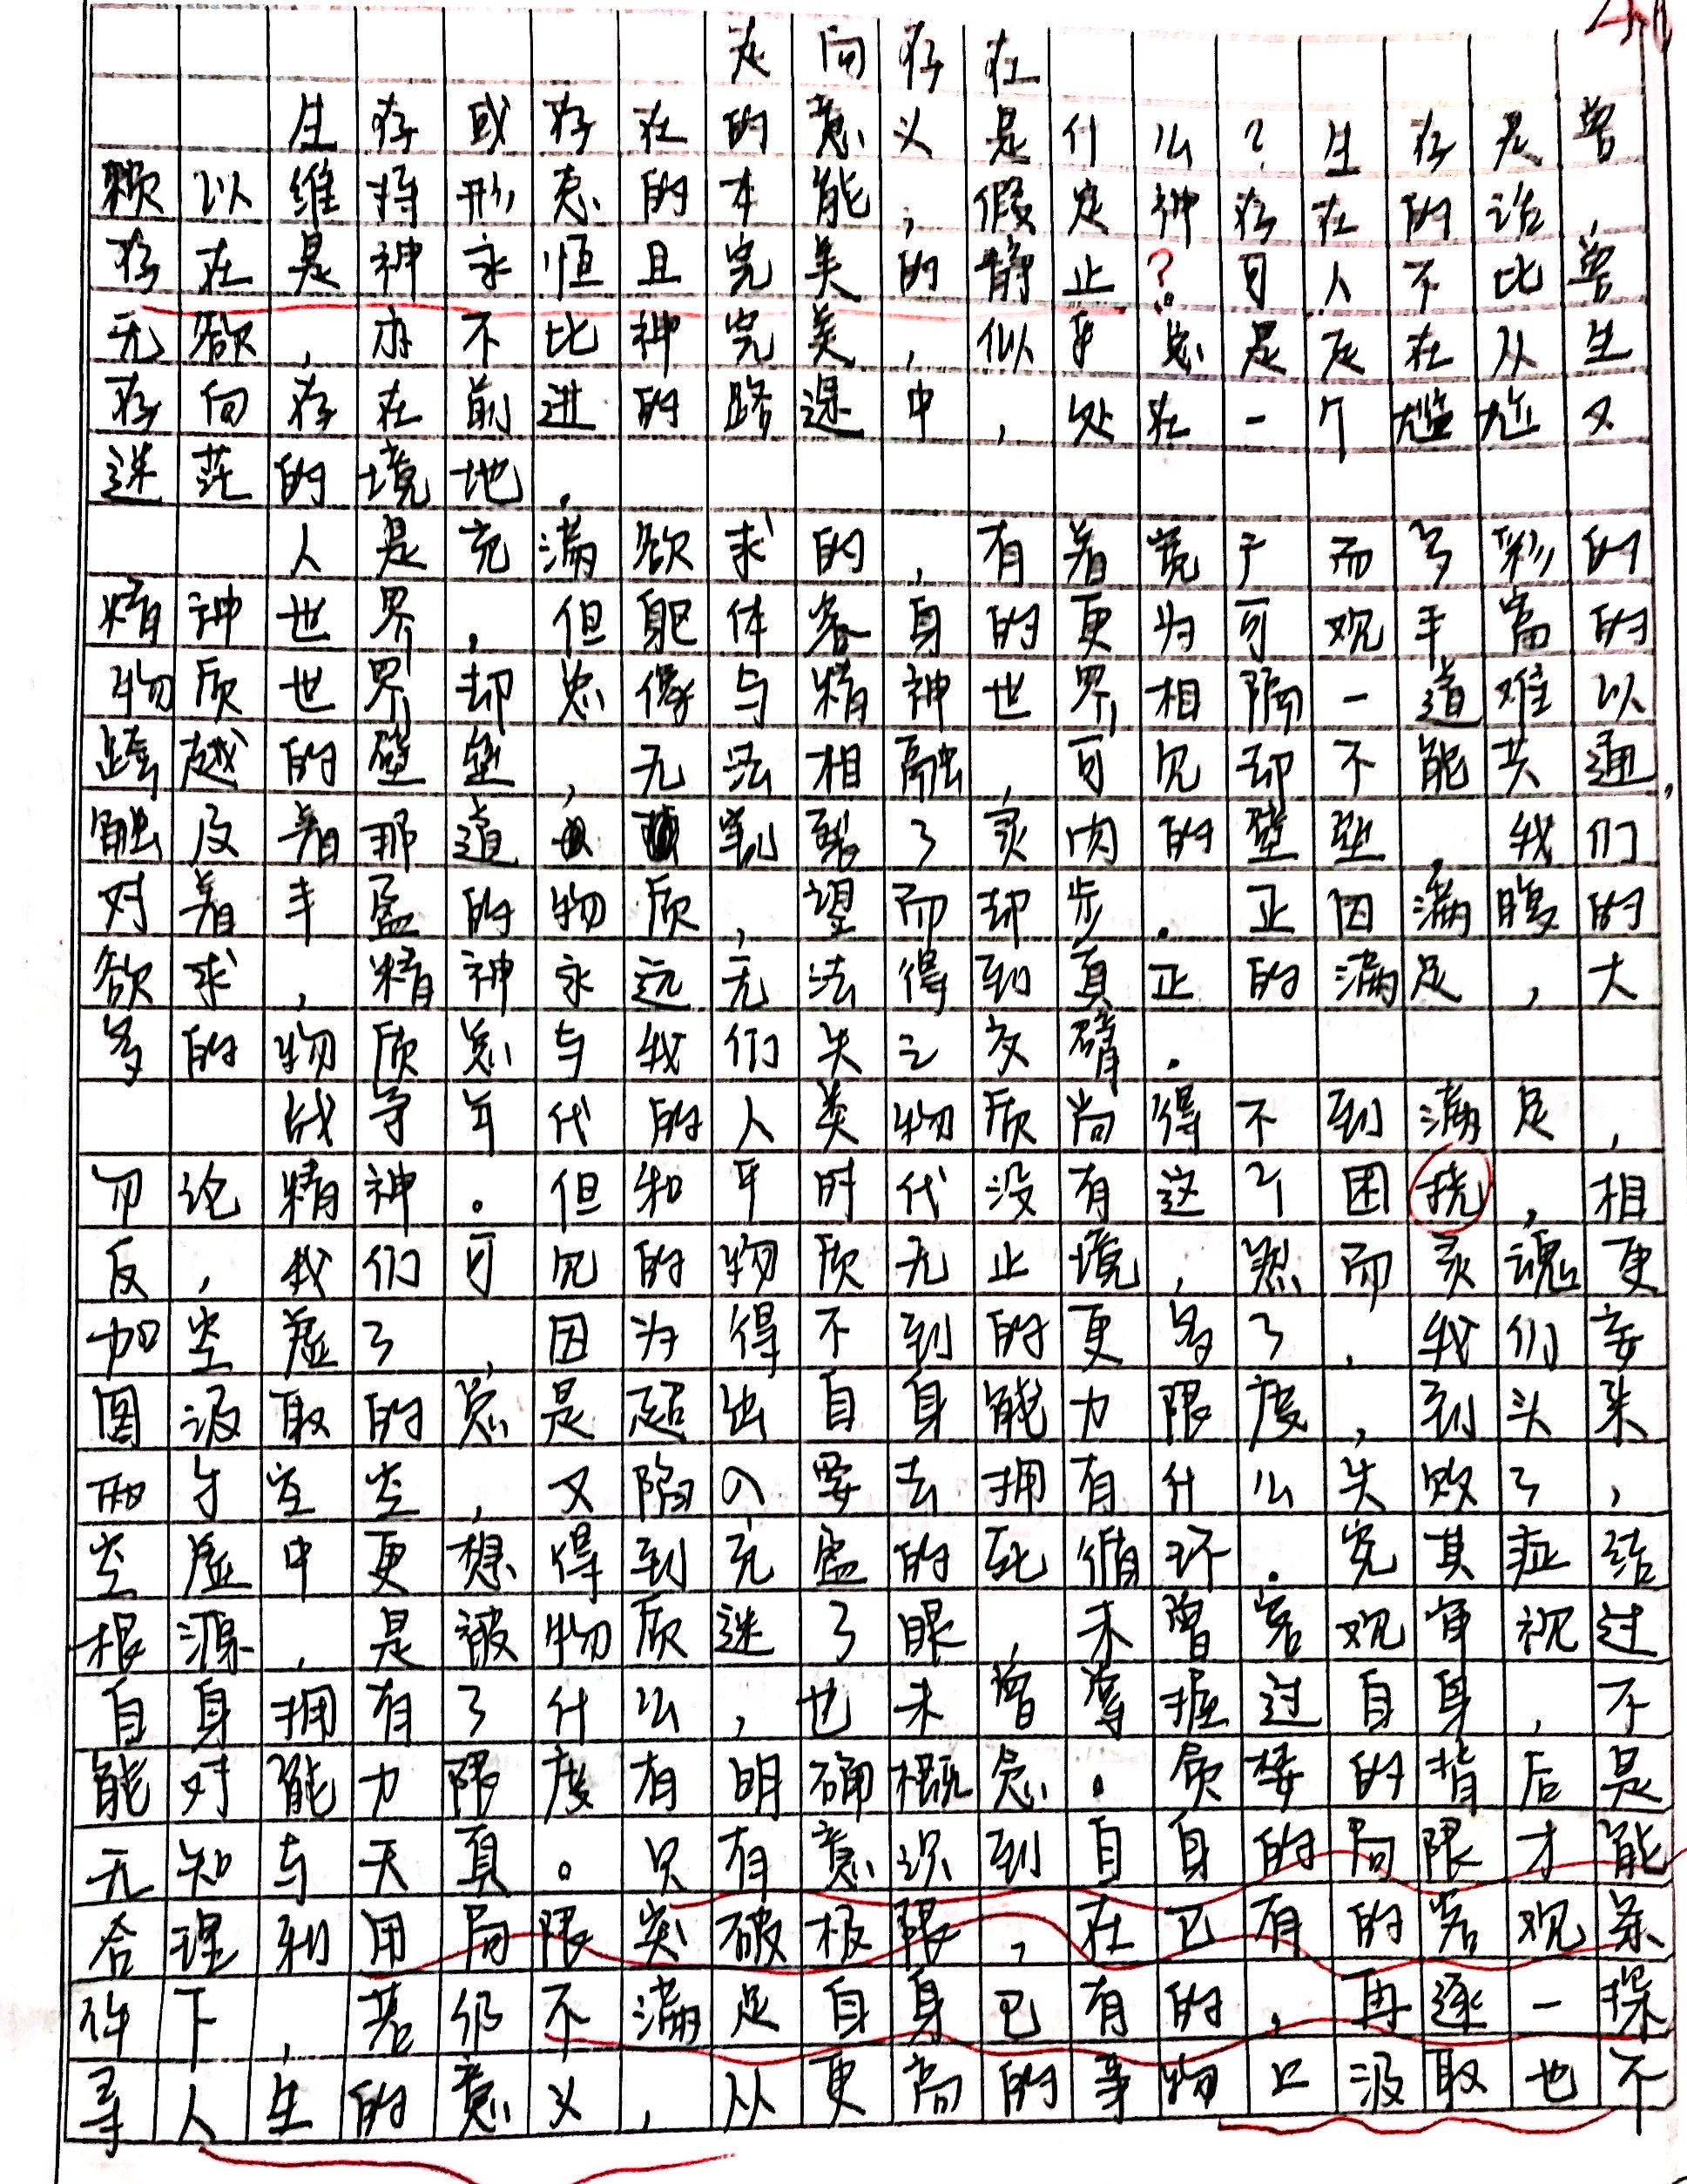 走向存在
生存或存在的意义是什么?生存是兽
赖以维持形态的本能,假定神存在的话,
存在是神永恒且完美的静止?。可人不比兽
无欲,亦不比神完美,似乎总是走在从生
存向存在前进的路途中,处在一个尴尬又
迷茫的境地.
人是充满欲求的,有着宽广而多彩的
精神世界,但躯体客身的更为可观丰富的
物质世界却总像与精神世界相隔一道难以
跨越的壁垒,无法相融,可见却不能共通,
触及着那道割裂了灵肉的壁垒,我们
对着丰盈的物质,望而却步.正因满腹的
欲求,精神永远无法得到真正的满足,大
多的物质总与我们失之交臂.
战争年代的人类物质尚得不到满足,
勿论精神。但和平时代没有这个困挠,相
反,我们可见的物质无止境,然而灵魂更
加空虚了,因为得不到的更多了,我们妄
图汲取的总是超出自身能力限度,到头来
两手空空,又陷入要去拥有什么失败了,
空虚中更想得到充盈的死循环.究其症结
根源,是被物质迷了眼,未曾客观审视过
自身拥有了什么,也未曾掌握过自身,不
能对能力限度有明确概念。贪婪的背后是
无知与天真。只有意识到自身的局限才能
合理利用局限突破极限,在已有的客观条
件下,若仍不满足自身已有的,再逐一探
寻人生的意义,从更高的事物上汲取也不